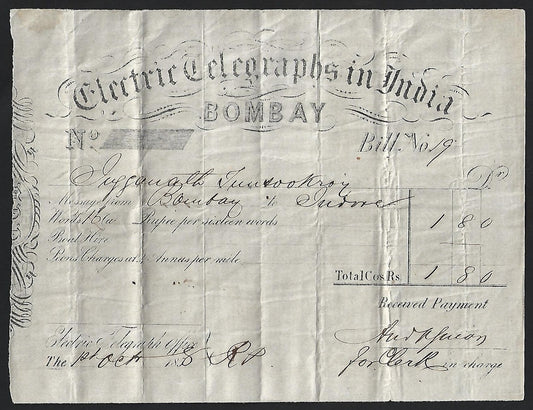 Electric Telegraphs in India
BOMBAY
No. Bill. No. 19
Dr
Juggonath
Message from Bombay to Indore
Words Rupee per sixteen words 1 8 0
Boat Hire
Peons Charges at 4 Annas per mile
Total Cos Rs. 1 8 0
Received Payment
Electric Telegraph Office
The 1st Oct 185
for Clerk in charge